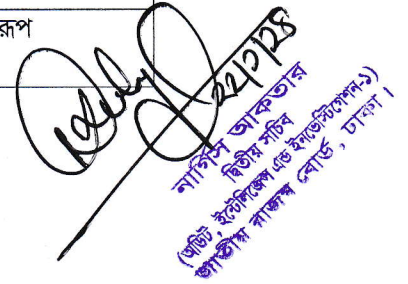 রূপ
২২/১/২৪
নার্গিস আকতার
দ্বিতীয় সচিব
(অডিট, ইন্টেলিজেন্স এন্ড ইনভেস্টিগেশন-১)
জাতীয় রাজস্ব বোর্ড, ঢাকা।